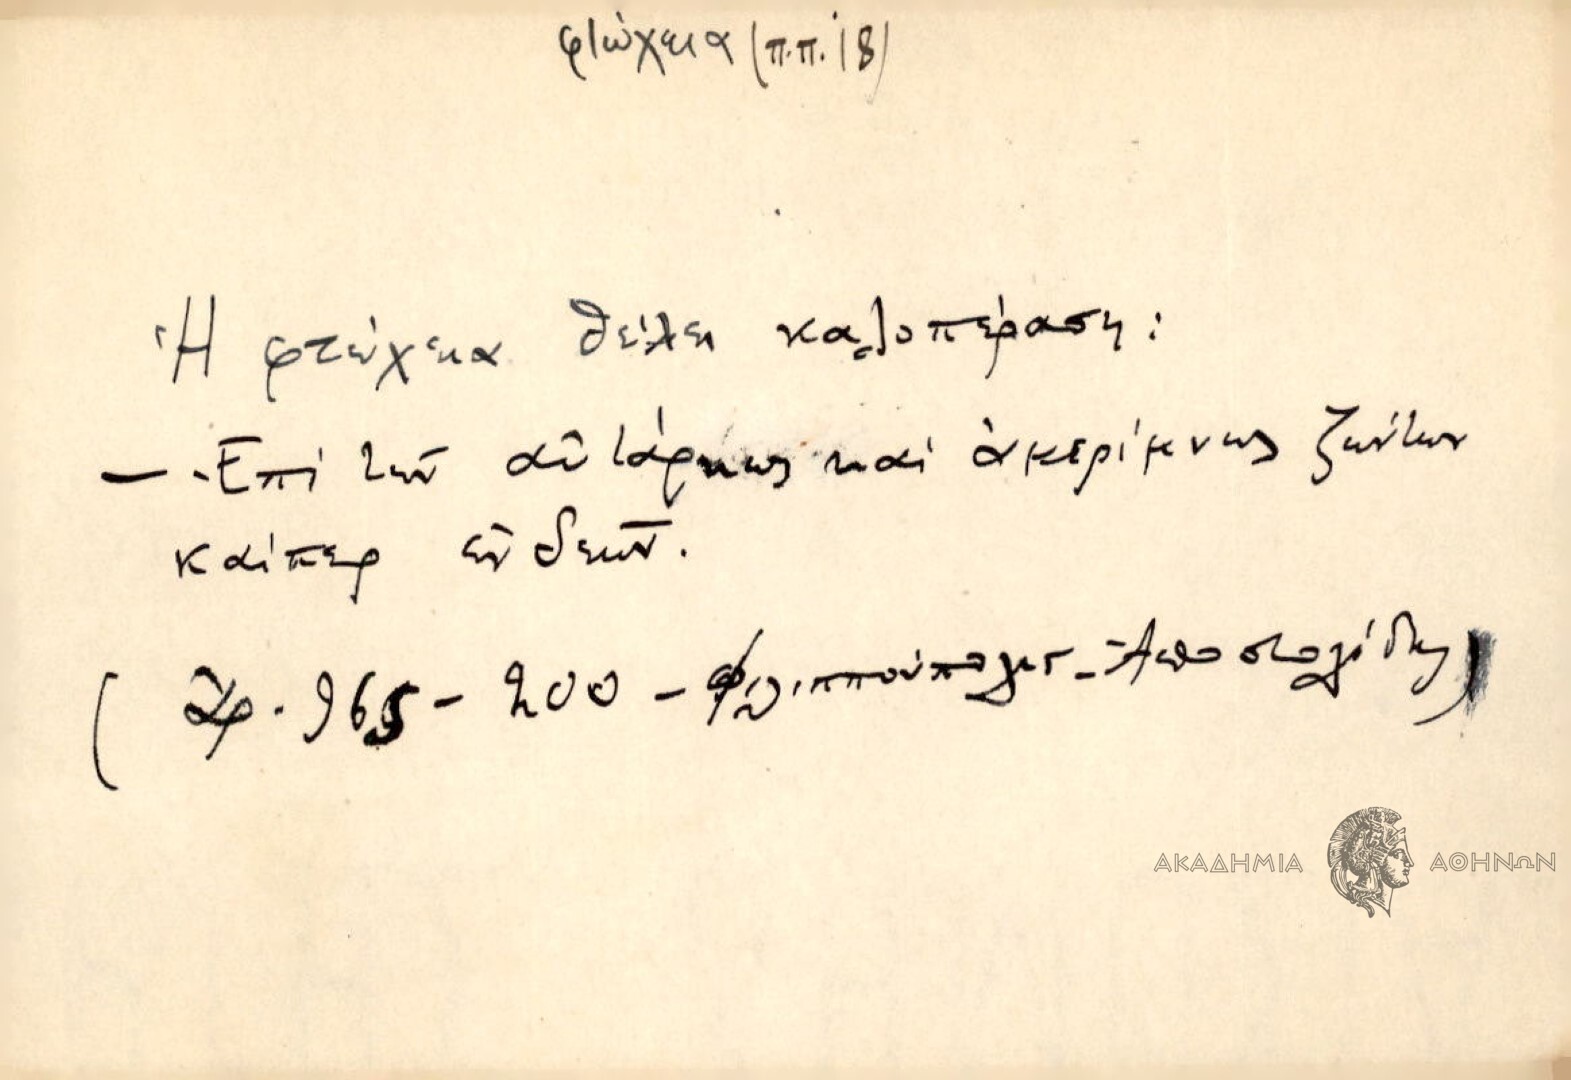 φτώχεια (π.π. 18)
Ἡ φτώχεια θέλει καλοπέραση:
— Ἐπὶ τῶν αὐτάρκως καὶ ἀμερίμνως ζώντων
καίπερ ἐνδεῶν.
(Ἀρ. 965 - 200 - Φιλιππούπολις - Ἀποστολίδης)
ΑΚΑΔΗΜΙΑ ΑΘΗΝΩΝ